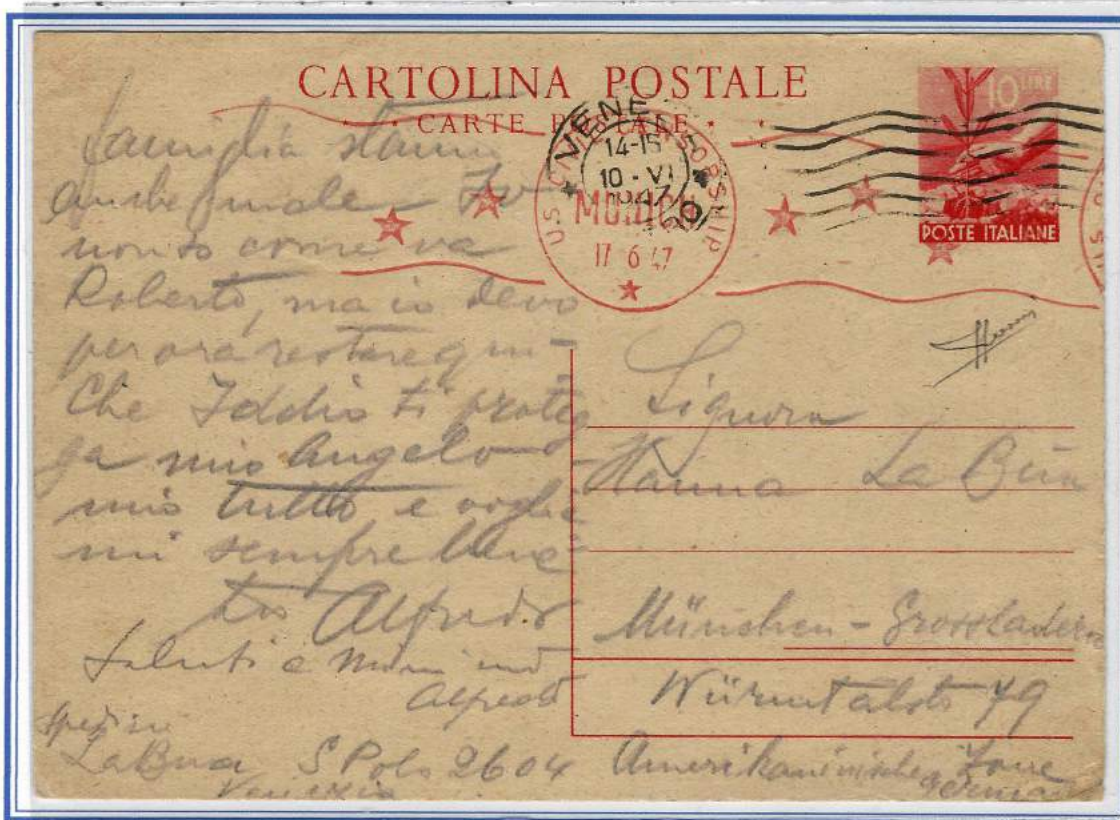 CARTOLINA POSTALE
CARTE POSTALE
10 LIRE
POSTE ITALIANE
VENE
14-15
10 - VI
1947
U.S. CIVIL CENSORSHIP
17 6 47
famiglia stanno
anche male - Io
non so come va
Roberto, ma io devo
per ora restare qui -
Che Iddio ti proteg
ga mio angelo
mio tutto e voglia
mi sempre bene
tuo Alfredo
Saluti e
Alfredo
La Bua S Polo 2604
Venezia
Signora
Hanna La Bua
München - Grosshadern
Würmtalstr 79
Amerikanische Zone